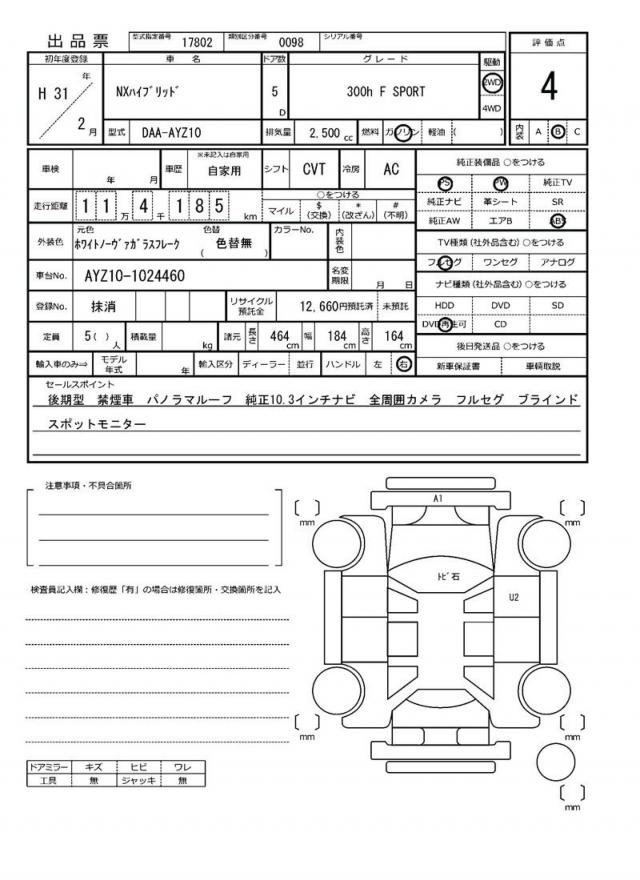 出品票 型式指定番号 17802 類別区分番号 0098 シリアル番号
評価点
初年度登録 車名 ドア数 グレード 駆動
H 31 年 NXハイブリッド 5 D 300h F SPORT 2WD 4
2 月 4WD
型式 DAA-AYZ10 排気量 2,500 cc 燃料 ガソリン 軽油 ( ) 内装 A B C
車検 年 月 車歴 ※未記入は自家用 自家用 シフト CVT 冷房 AC 純正装備品 ○をつける
PS PW 純正TV
走行距離 1 1 万 4 千 1 8 5 km ○をつける
マイル $ (交換) * (改ざん) # (不明)
純正ナビ 革シート SR
純正AW エアB ABS
外装色 元色 ホワイトノーヴァガラスフレーク 色替 ( 色替無 ) カラーNo. 内装色
TV種類 (社外品含む) ○をつける
フルセグ ワンセグ アナログ
車台No. AYZ10-1024460 名変期限 月 日
ナビ種類 (社外品含む) ○をつける
登録No. 抹消 リサイクル預託金 12,660円預託済 未預託
HDD DVD SD
DVD再生可 CD
定員 5( ) 人 積載量 kg 諸元 長さ 464 cm 幅 184 cm 高さ 164 cm
後日発送品 ○をつける
輸入車のみ⇒ モデル年式 年 輸入区分 ディーラー 並行 ハンドル 左 右
新車保証書 車輌取説
セールスポイント
後期型 禁煙車 パノラマルーフ 純正10.3インチナビ 全周囲カメラ フルセグ ブラインド
スポットモニター
注意事項・不具合箇所
検査員記入欄:修復歴「有」の場合は修復箇所・交換箇所を記入
A1
[ ] mm
[ ] mm
トビ石
U2
[ ] mm
[ ] mm
[ ] mm
ドアミラー キズ ヒビ ワレ
工具 無 ジャッキ 無